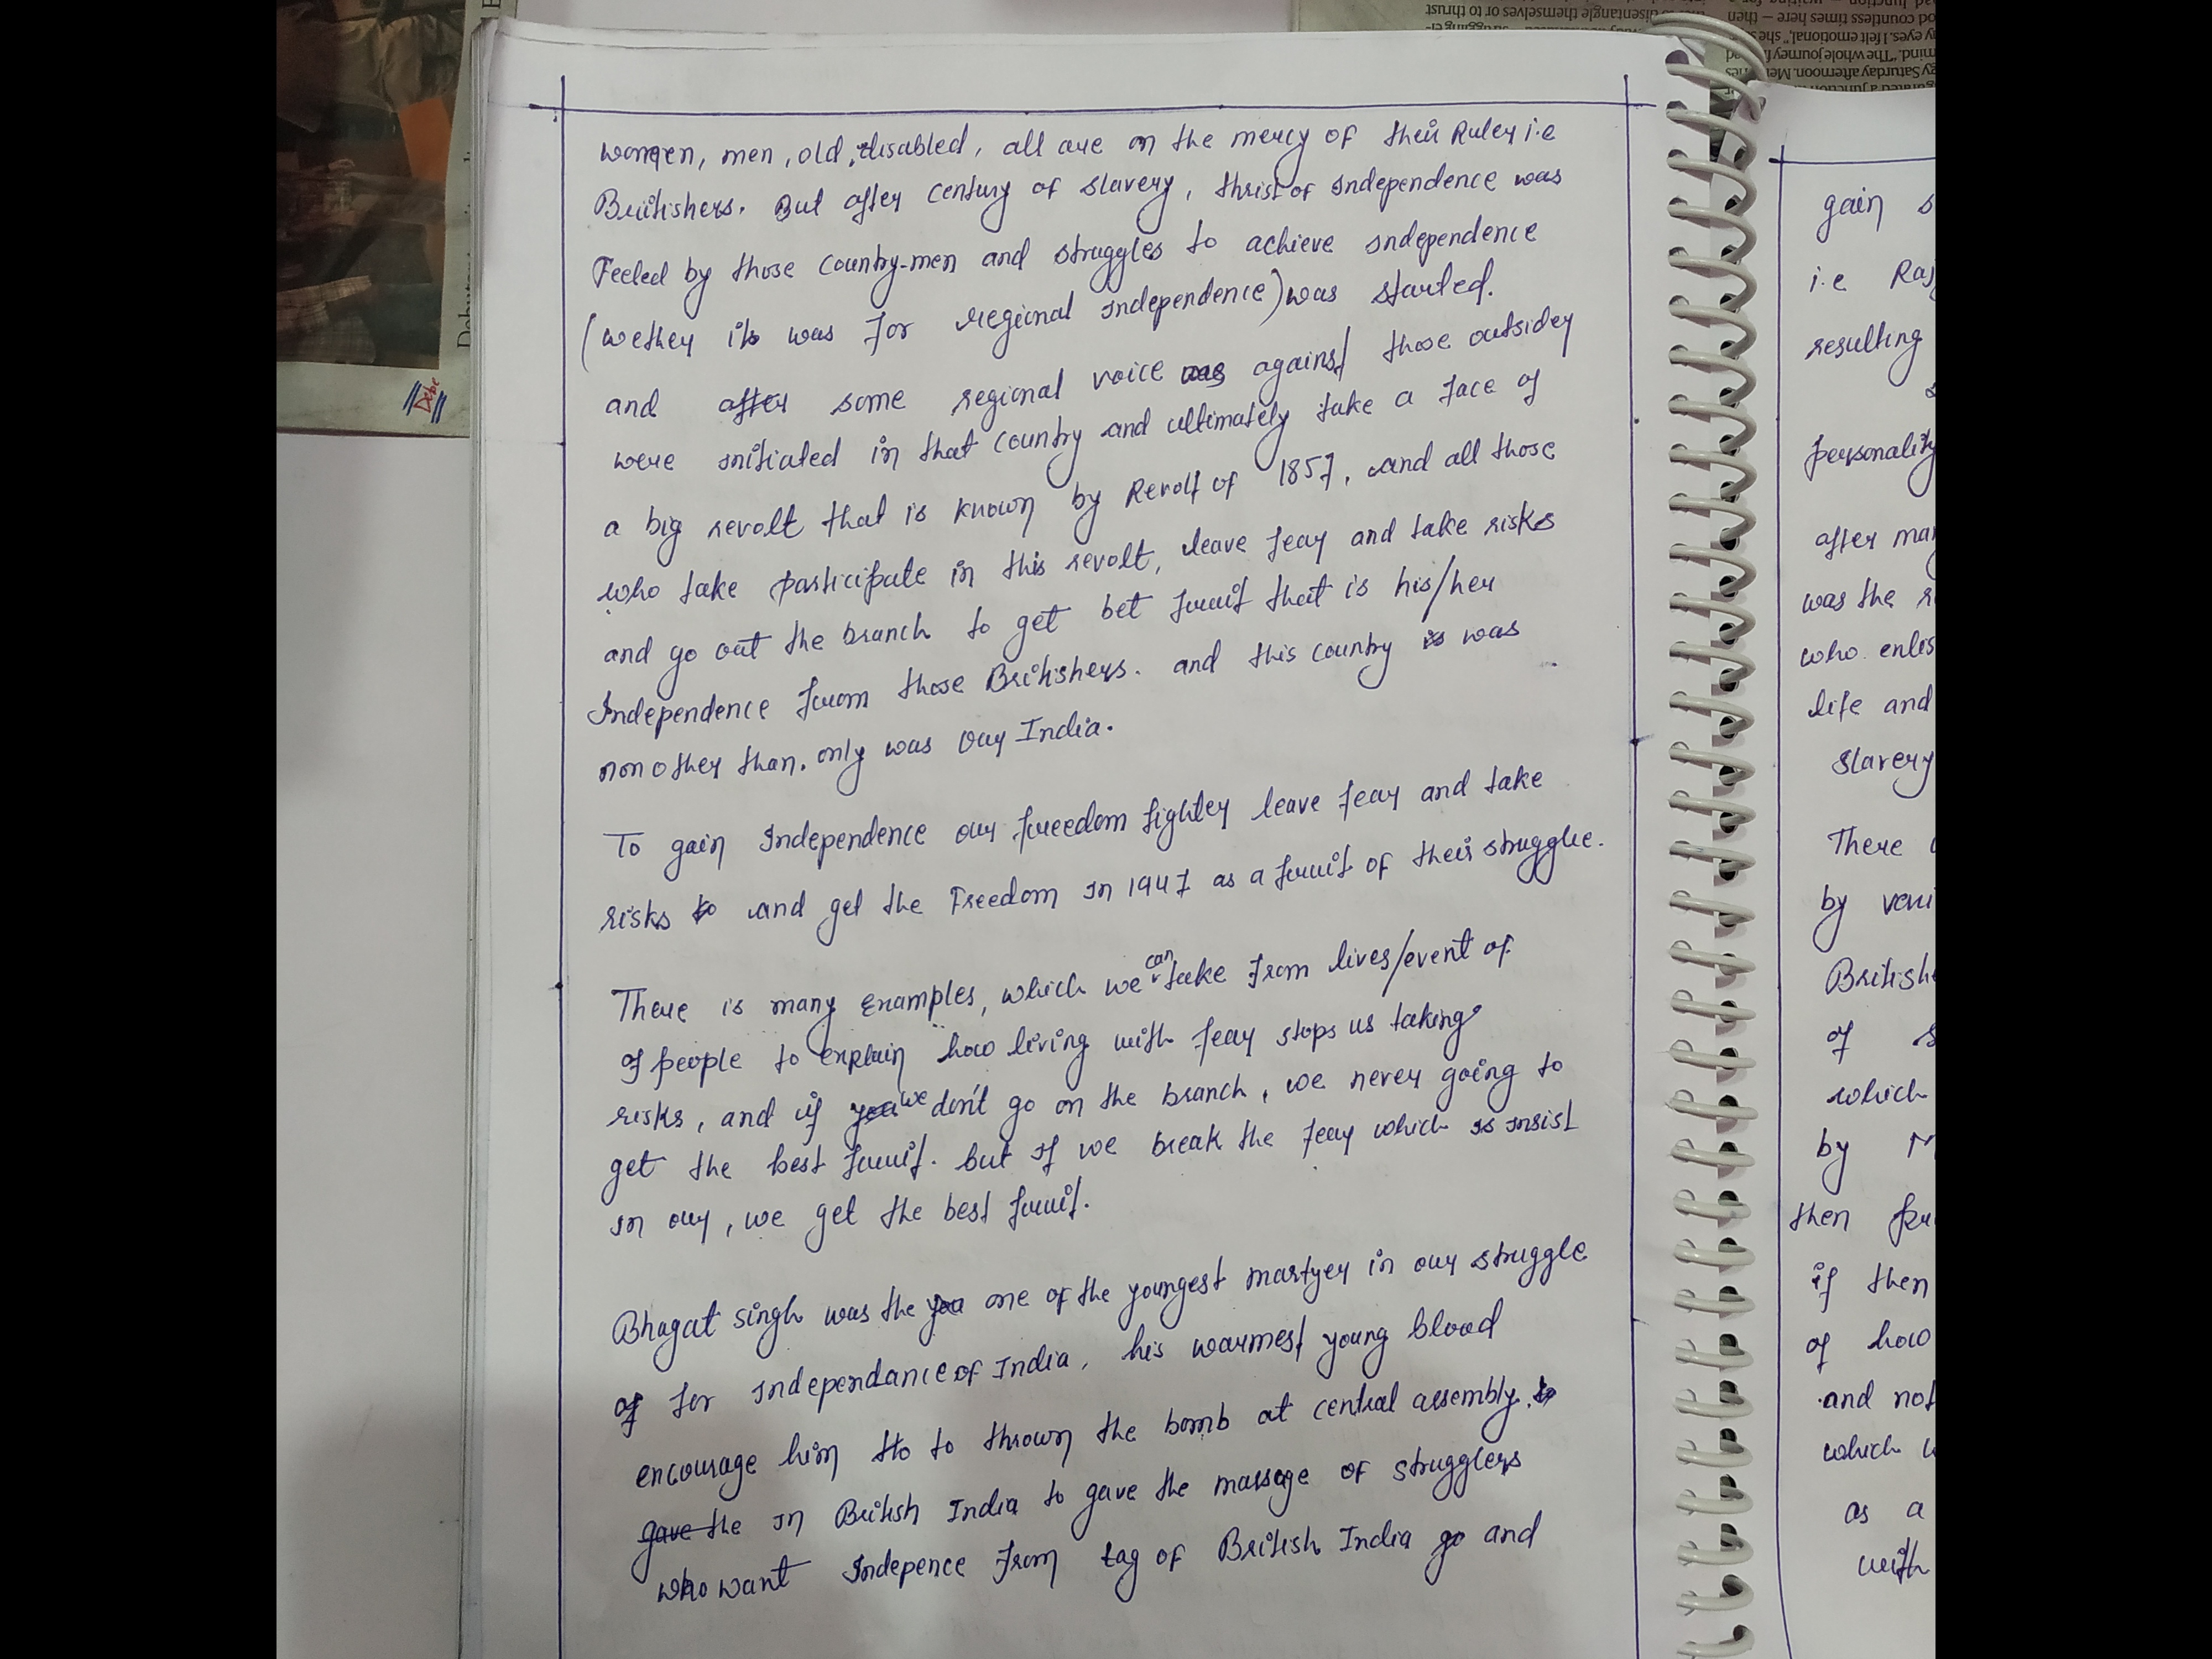 women, men, old, disabled, all are on the mercy of their Ruler i.e
Britishers. But after century of slavery, thrist of independence was
Feeled by those country-men and struggles to achieve independence
(wether its was for regional independence) was started.
and after some regional voice against those outsider
were initiated in that country and ultimately take a face of
a big revolt that is known by Revolt of 1857, and all those
who take participate in this revolt, leave fear and take risks
and go out the branch to get bet fruit that is his/her
Independence from those Britishers. and this country was
non other than. only was our India.
To gain Independence our freedom fighter leave fear and take
risks and get the Freedom in 1947 as a fruit of their struggle.
There is many examples, which we can take from lives/event of
of people to explain how living with fear stops us taking
risks, and if we don't go on the branch, we never going to
get the best fruit. but if we break the fear which is insist
in our, we get the best fruit.
Bhagat singh was the one of the youngest martyer in our struggle
of for independance of India, his warmest young blood
encourage him to to thrown the bomb at central assembly.
gave the in British India to gave the massage of strugglers
who want Indepence from tag of British India go and
gain
i.e
resulting
personality
after
was the
who
life and
slavery
There
by
of
which
by
then
if then
of how
and
which
as a
with
Debe